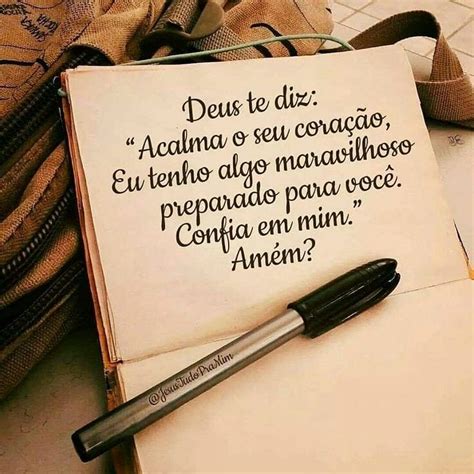 Deus te diz:
“Acalma o seu coração,
Eu tenho algo maravilhoso
preparado para você.
Confia em mim.”
Amém?
@JesusTudoPraMim